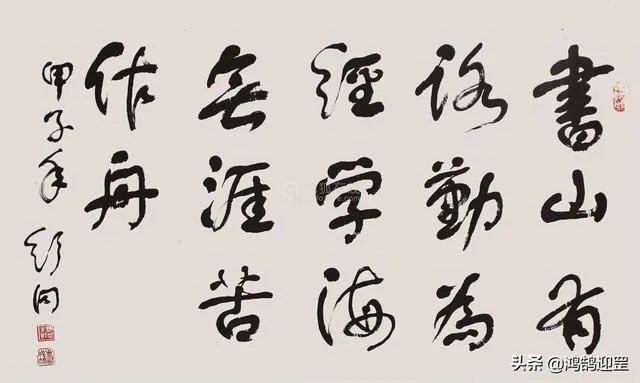 書山有
路勤為
經学海
無涯苦
作舟
甲子年 舒同
头条 @鸿鹄迎罡